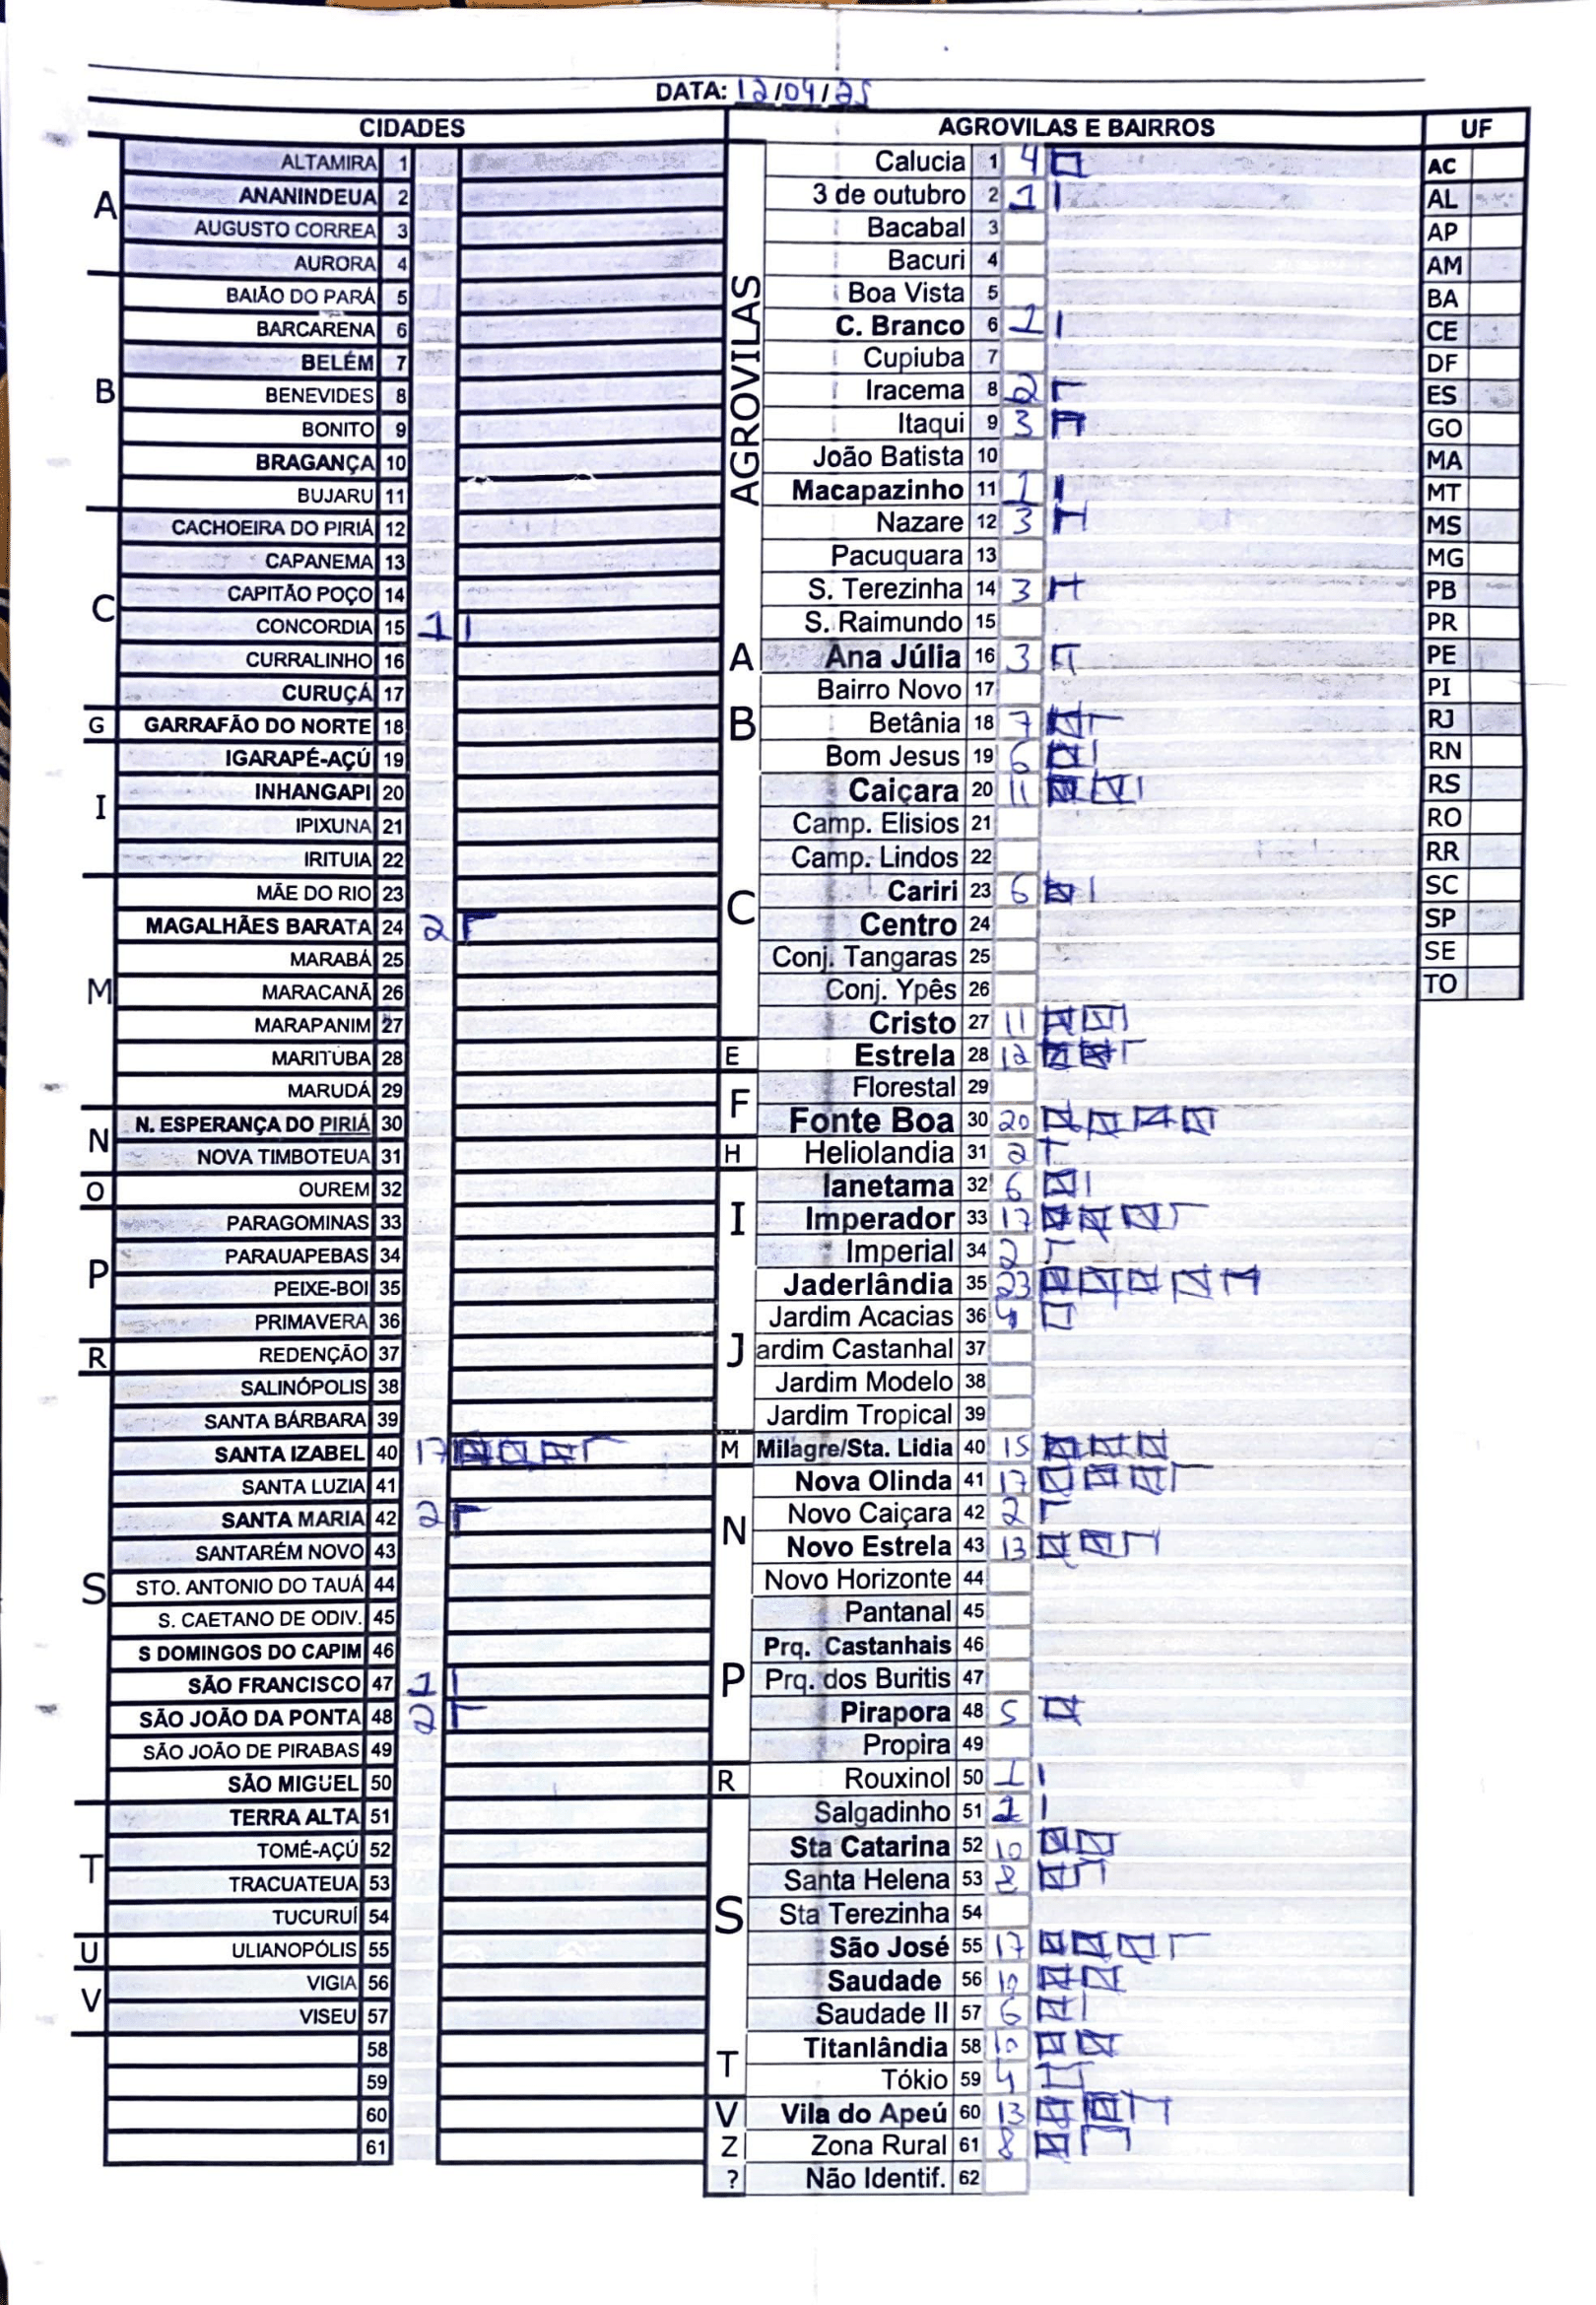 DATA: 12/04/25
CIDADES
A
ALTAMIRA 1
ANANINDEUA 2
AUGUSTO CORREA 3
AURORA 4
B
BAIÃO DO PARÁ 5
BARCARENA 6
BELÉM 7
BENEVIDES 8
BONITO 9
BRAGANÇA 10
BUJARU 11
C
CACHOEIRA DO PIRIÁ 12
CAPANEMA 13
CAPITÃO POÇO 14
CONCORDIA 15 1
CURRALINHO 16
CURUÇÁ 17
G
GARRAFÃO DO NORTE 18
I
IGARAPÉ-AÇÚ 19
INHANGAPI 20
IPIXUNA 21
IRITUIA 22
M
MÃE DO RIO 23
MAGALHÃES BARATA 24 2
MARABÁ 25
MARACANÃ 26
MARAPANIM 27
MARITUBA 28
MARUDÁ 29
N
N. ESPERANÇA DO PIRIÁ 30
NOVA TIMBOTEUA 31
O
OUREM 32
P
PARAGOMINAS 33
PARAUAPEBAS 34
PEIXE-BOI 35
PRIMAVERA 36
R
REDENÇÃO 37
S
SALINÓPOLIS 38
SANTA BÁRBARA 39
SANTA IZABEL 40 17
SANTA LUZIA 41
SANTA MARIA 42 2
SANTARÉM NOVO 43
STO. ANTONIO DO TAUÁ 44
S. CAETANO DE ODIV. 45
S DOMINGOS DO CAPIM 46
SÃO FRANCISCO 47 1
SÃO JOÃO DA PONTA 48 2
SÃO JOÃO DE PIRABAS 49
SÃO MIGUEL 50
T
TERRA ALTA 51
TOMÉ-AÇÚ 52
TRACUATEUA 53
TUCURUÍ 54
U
ULIANOPÓLIS 55
V
VIGIA 56
VISEU 57
58
59
60
61
AGROVILAS E BAIRROS
AGROVILAS
Calucia 1 4
3 de outubro 2 1
Bacabal 3
Bacuri 4
Boa Vista 5
C. Branco 6 1
Cupiuba 7
Iracema 8 2
Itaqui 9 3
João Batista 10
Macapazinho 11 1
Nazare 12 3
Pacuquara 13
S. Terezinha 14 3
S. Raimundo 15
A
Ana Júlia 16 3
B
Bairro Novo 17
Betânia 18 7
Bom Jesus 19 6
C
Caiçara 20 11
Camp. Elisios 21
Camp. Lindos 22
Cariri 23 6
Centro 24
Conj. Tangaras 25
Conj. Ypês 26
Cristo 27 11
E
Estrela 28 12
F
Florestal 29
Fonte Boa 30 20
H
Heliolandia 31 2
I
Ianetama 32 6
Imperador 33 17
Imperial 34 2
J
Jaderlândia 35 23
Jardim Acacias 36 4
ardim Castanhal 37
Jardim Modelo 38
Jardim Tropical 39
M
Milagre/Sta. Lidia 40 15
N
Nova Olinda 41 17
Novo Caiçara 42 2
Novo Estrela 43 13
Novo Horizonte 44
P
Pantanal 45
Prq. Castanhais 46
Prq. dos Buritis 47
Pirapora 48 5
Propira 49
R
Rouxinol 50 1
S
Salgadinho 51 1
Sta Catarina 52 10
Santa Helena 53 8
Sta Terezinha 54
São José 55 17
Saudade 56 10
Saudade II 57 6
T
Titanlândia 58 10
Tókio 59 4
V
Vila do Apeú 60 13
Z
Zona Rural 61 8
?
Não Identif. 62
UF
AC
AL
AP
AM
BA
CE
DF
ES
GO
MA
MT
MS
MG
PB
PR
PE
PI
RJ
RN
RS
RO
RR
SC
SP
SE
TO